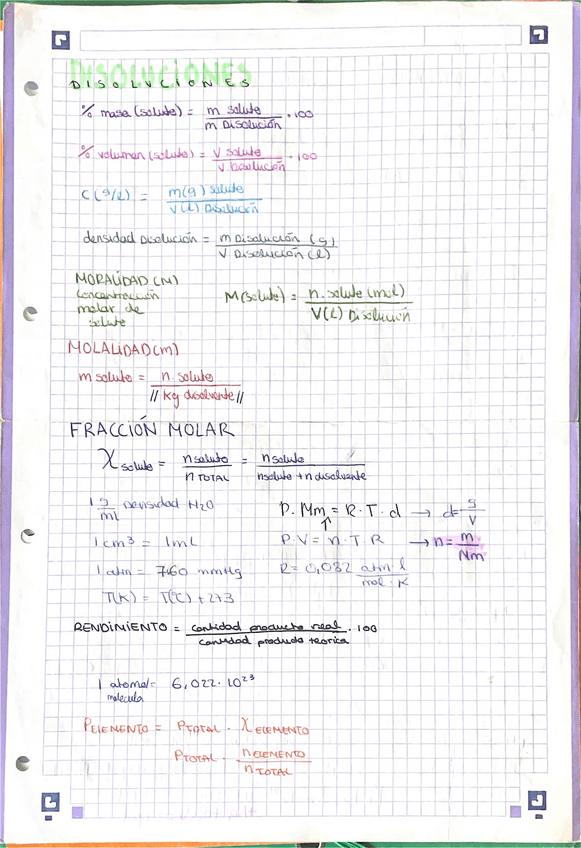 DISOLUCIONES
DISOLUCIONES
% masa (soluto) = m soluto / m Disolución · 100
% volumen (soluto) = V soluto / V Disolución · 100
C (g/l) = m(g) soluto / V(L) Disolución
densidad Disolución = m Disolución (g) / V Disolución (l)
MORALIDAD (M)
Concentración
molar de
soluto
M(soluto) = n. soluto (mol) / V(L) Disolución
MOLALIDAD (m)
m soluto = n. soluto / // Kg disolvente //
FRACCIÓN MOLAR
X soluto = n soluto / n TOTAL = n soluto / n soluto + n disolvente
1 g/ml Densidad H2O
P. Mm = R · T · d → d = g/V
↑
1 cm³ = 1 mL
P · V = n · T · R → n = m/Mm
1 atm = 760 mmHg
R = 0,082 atm · l / mol · K
T(K) = T(ºC) + 273
RENDIMIENTO = cantidad producto real / cantidad producto teórica · 100
1 atomo/molecula = 6,022 · 10²³
PELEMENTO = PTOTAL · X ELEMENTO
PTOTAL · n ELEMENTO / n TOTAL